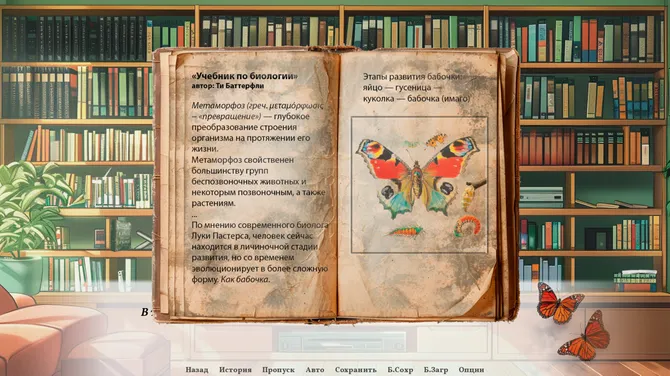 «Учебник по биологии»
автор: Ти Баттерфли
Метаморфоз (греч. μεταμόρφωσις
– «превращение») — глубокое
преобразование строения
организма на протяжении его
жизни.
Метаморфоз свойственен
большинству групп
беспозвоночных животных и
некоторым позвоночным, а также
растениям.
...
По мнению современного биолога
Луки Пастерса, человек сейчас
находится в личиночной стадии
развития, но со временем
эволюционирует в более сложную
форму. Как бабочка.
Этапы развития бабочки:
яйцо — гусеница —
куколка — бабочка (имаго)
В
Назад История Пропуск Авто Сохранить Б.Сохр Б.Загр Опции